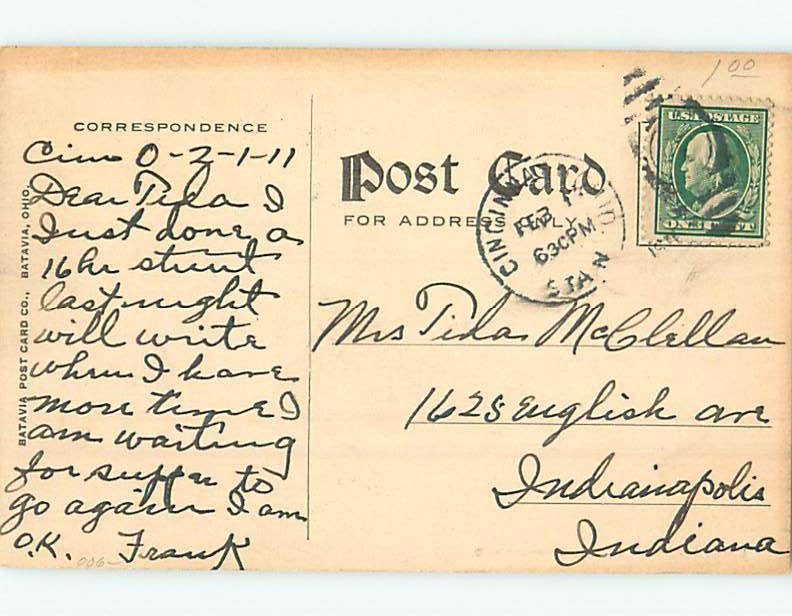 1 00
CORRESPONDENCE
Cin O-2-1-11
Dear Tida I
Just done a
16 hr stunt
last night
will write
when I have
more time I
am waiting
for supper to
go again I am
O.K. Frank
006-
BATAVIA POST CARD CO., BATAVIA, OHIO.
Post Card
FOR ADDRESS ONLY.
CINCINNATI, OHIO
FEB 1
630PM
STA N
U.S. POSTAGE
ONE CENT
Mrs Tida McClellan
1625 English ave
Indianapolis
Indiana